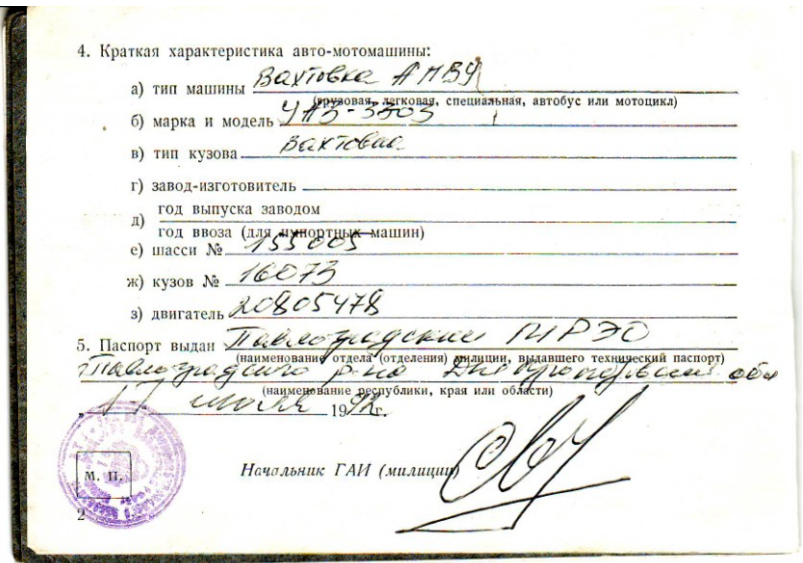 4. Краткая характеристика авто-мотомашины:
а) тип машины Вахтовка
(грузовая, легковая, специальная, автобус или мотоцикл)
б) марка и модель УАЗ-3303
в) тип кузова Вахтовка
г) завод-изготовитель
д) год выпуска заводом
год ввоза (для импортных машин)
е) шасси № 155005
ж) кузов № 16073
з) двигатель 20805478
5. Паспорт выдан Павлоградским МРЭО
(наименование отдела (отделения) милиции, выдавшего технический паспорт)
Павлоградского р-на Днепропетровской обл
(наименование республики, края или области)
17 июля 1992г.
Начальник ГАИ (милиции)
М. П.
2